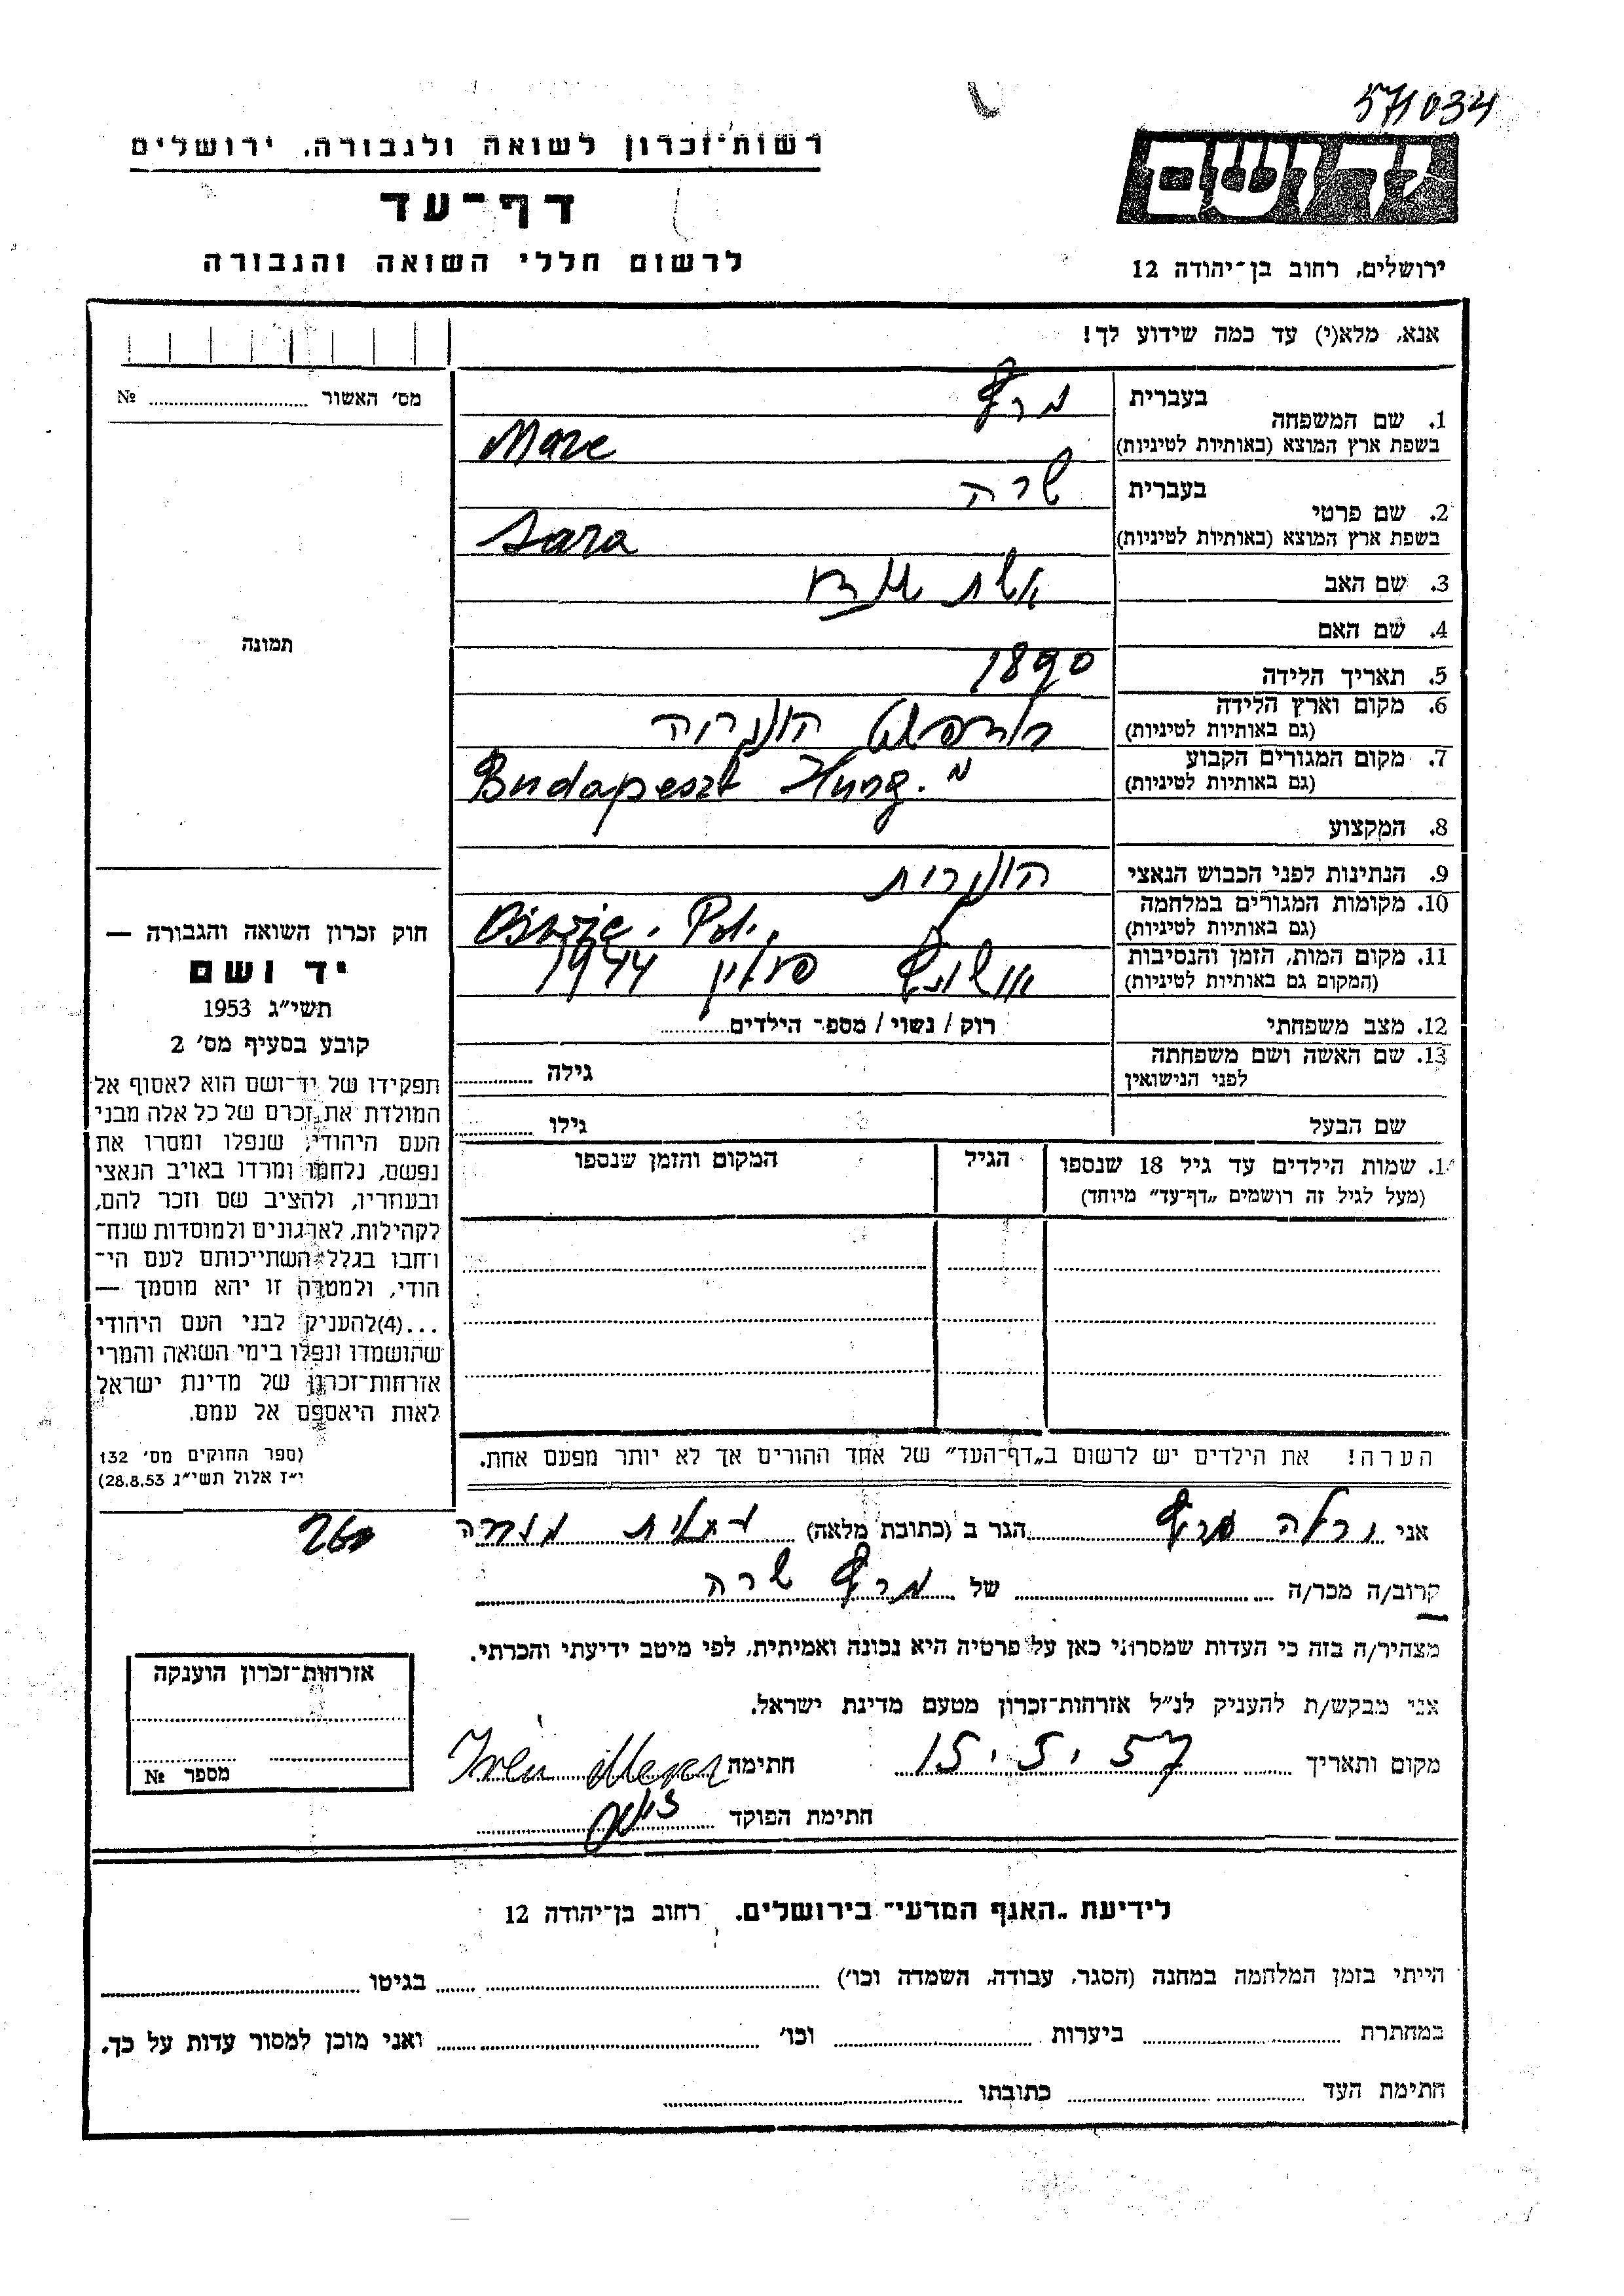 571034
רשות־זכרון לשואה ולגבורה, ירושלים
ידושם
דף־עד
לרשום חללי השואה והגבורה
ירושלים, רחוב בן־יהודה 12
אנא, מלא(י) עד כמה שידוע לך!
מס׳ האשור № 
בעברית
1. שם המשפחה
בשפת ארץ המוצא (באותיות לטיניות) Mare
בעברית שרה
2. שם פרטי
בשפת ארץ המוצא (באותיות לטיניות) Sara
3. שם האב אשת
4. שם האם
תמונה
5. תאריך הלידה 1890
6. מקום וארץ הלידה בודפשט הונגריה
(גם באותיות לטיניות)
7. מקום המגורים הקבוע Budapeszt Hung.
(גם באותיות לטיניות)
8. המקצוע
9. הנתינות לפני הכבוש הנאצי הונגרית
10. מקומות המגורים במלחמה
(גם באותיות לטיניות)
11. מקום המות, הזמן והנסיבות פולין 1944
(המקום גם באותיות לטיניות)
12. מצב משפחתי רוק / נשוי / מספר הילדים
13. שם האשה ושם משפחתה גילה
לפני הנישואין
שם הבעל גילו
1. שמות הילדים עד גיל 18 שנספו הגיל המקום והזמן שנספו
(מעל לגיל זה רושמים „דף־עד״ מיוחד)
הערה! את הילדים יש לרשום ב„דף־העד״ של אחד ההורים אך לא יותר מפעם אחת.
חוק זכרון השואה והגבורה —
יד ושם
תשי״ג 1953
קובע בסעיף מס׳ 2
תפקידו של יד־ושם הוא לאסוף אל
המולדת את זכרם של כל אלה מבני
העם היהודי, שנפלו ומסרו את
נפשם, נלחמו ומרדו באויב הנאצי
ובעוזריו, ולהציב שם וזכר להם,
לקהילות, לארגונים ולמוסדות שנח־
רחבו בגלל השתייכותם לעם הי־
הודי, ולמטרה זו יהא מוסמך —
...(4)להעניק לבני העם היהודי
שהושמדו ונפלו בימי השואה והמרי
אזרחות־זכרון של מדינת ישראל
לאות היאספם אל עמם.
(ספר החוקים מס׳ 132
י״ז אלול תשי״ג 28.8.53)
אני הגר ב (כתובת מלאה)
קרוב/ה מכר/ה של שרה
מצהיר/ה בזה כי העדות שמסרתי כאן על פרטיה היא נכונה ואמיתית, לפי מיטב ידיעתי והכרתי.
אני מבקש/ת להעניק לנ״ל אזרחות־זכרון מטעם מדינת ישראל.
מקום ותאריך 15.5.57 חתימה
חתימת הפוקד
אזרחות־זכרון הוענקה
מספר №
לידיעת „האגף המדעי״ בירושלים, רחוב בן־יהודה 12
הייתי בזמן המלחמה במחנה (הסגר, עבודה, השמדה וכו׳) בגיטו
במחתרת ביערות וכו׳ ואני מוכן למסור עדות על כך.
חתימת העד כתובתו